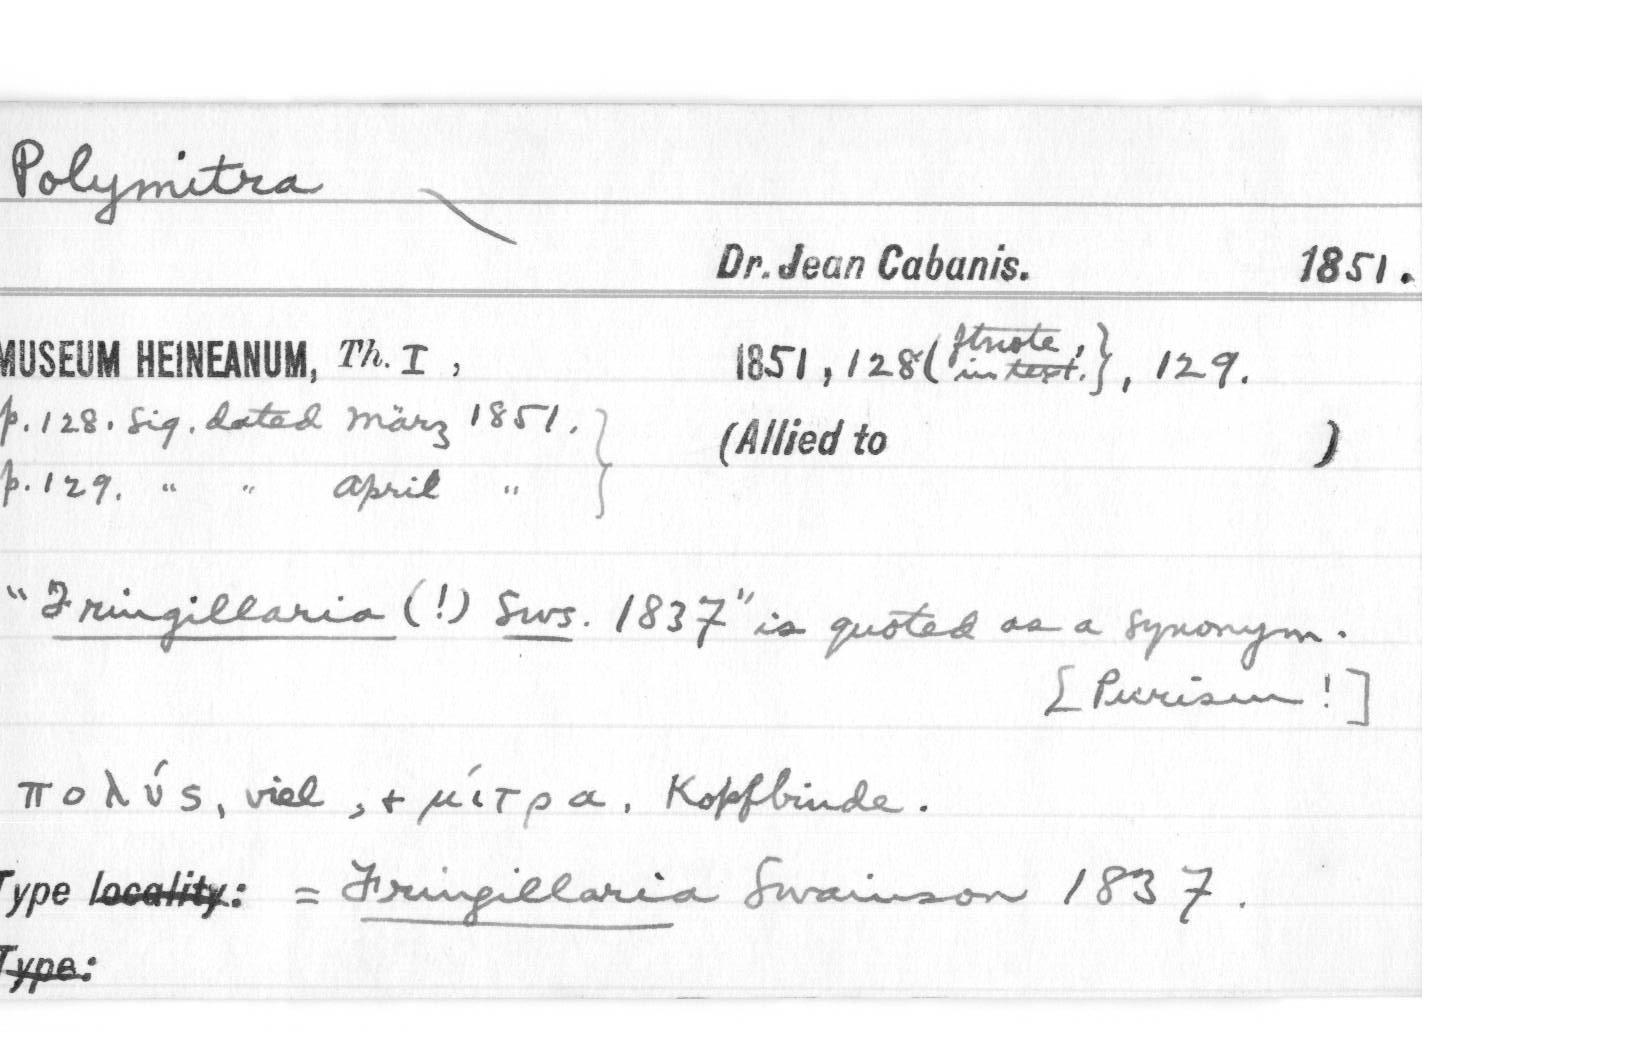 Polymitra
Dr. Jean Cabanis. 1851.
MUSEUM HEINEANUM, Th. I, 1851, 128 (ftnote, in text.}, 129.
p. 128. Sig. dated März 1851. } (Allied to )
p. 129. " " April "
"Fringillaria (!) Sws. 1837" is quoted as a synonym.
[Purism!]
πολύς, viel, + μίτρα, Kopfbinde.
Type locality: = Fringillaria Swainson 1837.
Type: